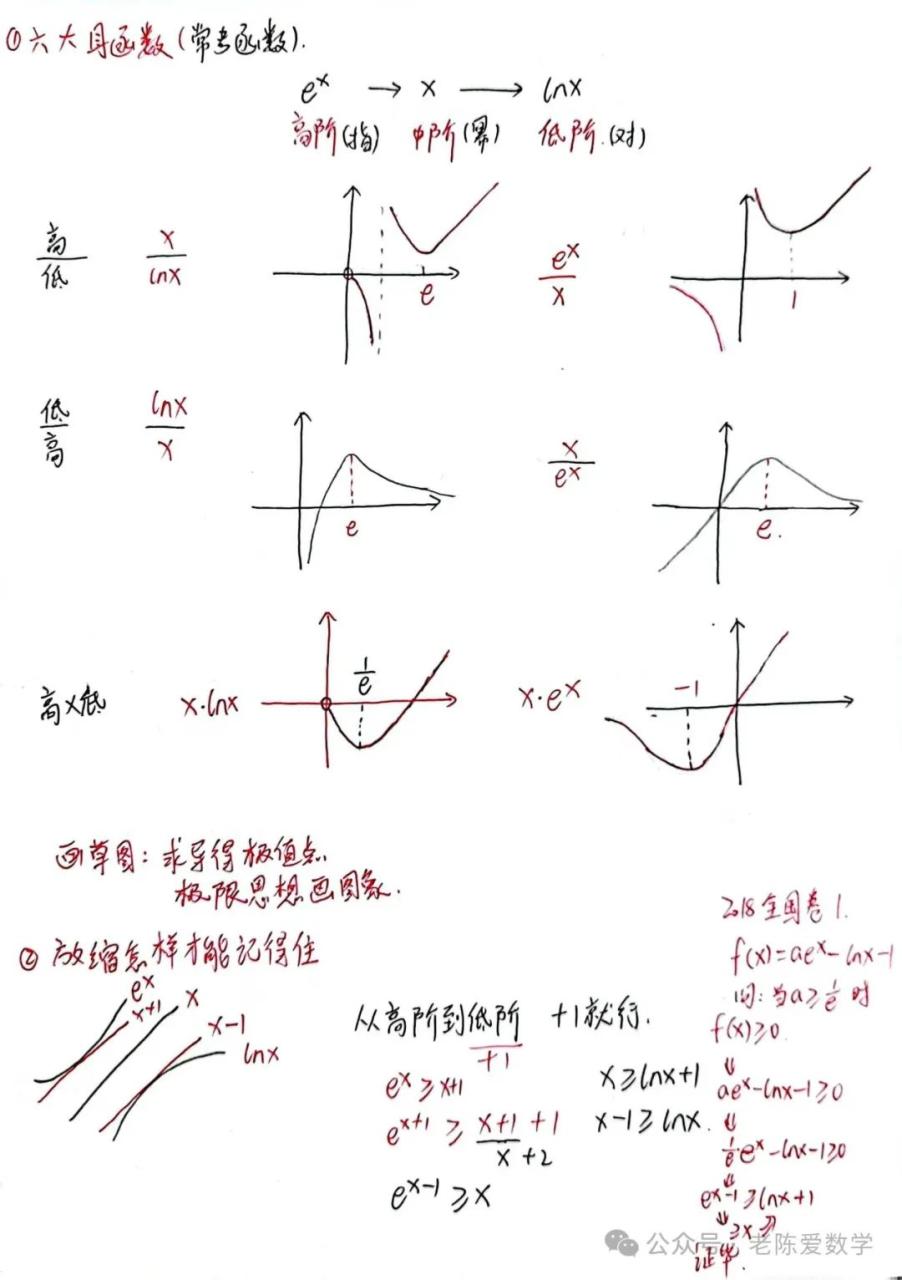 ① 六大母函数(常考函数).
e^x → x → lnx
高阶(指) 中阶(幂) 低阶.(对)
高/低 x/lnx e e^x/x 1
低/高 lnx/x e x/e^x e.
高×低 x·lnx 1/e x·e^x -1
画草图: 求导得极值点
极限思想画图象.
② 放缩怎样才能记得住
e^x
x+1
x
x-1
lnx
从高阶到低阶 +1就行.
+1
e^x ≥ x+1
e^(x+1) ≥ x+1 +1
x +2
e^(x-1) ≥ x
x ≥ lnx+1
x-1 ≥ lnx.
2018全国卷1.
f(x)=ae^x-lnx-1
问: 当a≥1/e时
f(x)≥0.
⇓
ae^x-lnx-1≥0
⇓
1/e·e^x-lnx-1≥0
⇓
e^(x-1)≥lnx+1
⇓ ≥x≥
证毕.
公众号 · 老陈爱数学